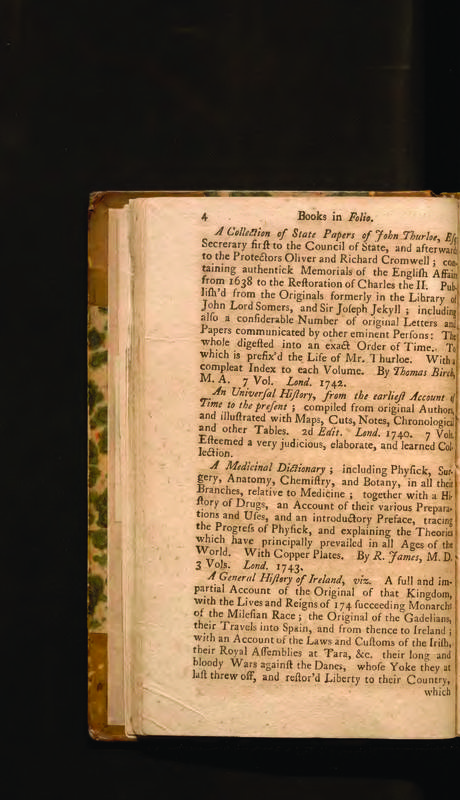 4 Books in Folio.
A Collection of State Papers of John Thurloe, Esq
Secrerary first to the Council of State, and afterwards
to the Protectors Oliver and Richard Cromwell ; con-
taining authentick Memorials of the English Affairs
from 1638 to the Restoration of Charles the II. Pub-
lish'd from the Originals formerly in the Library of
John Lord Somers, and Sir Joseph Jekyll ; including
also a considerable Number of original Letters and
Papers communicated by other eminent Persons : The
whole digested into an exact Order of Time. To
which is prefix'd the Life of Mr. Thurloe. With a
compleat Index to each Volume. By Thomas Birch,
M. A. 7 Vol. Lond. 1742.
An Universal History, from the earliest Account of
Time to the present ; compiled from original Authors,
and illustrated with Maps, Cuts, Notes, Chronological
and other Tables. 2d Edit. Lond. 1740. 7 Vols.
Esteemed a very judicious, elaborate, and learned Col-
lection.
A Medicinal Dictionary ; including Physick, Sur-
gery, Anatomy, Chemistry, and Botany, in all their
Branches, relative to Medicine ; together with a Hi-
story of Drugs, an Account of their various Prepara-
tions and Uses, and an introductory Preface, tracing
the Progress of Physick, and explaining the Theories
which have principally prevailed in all Ages of the
World. With Copper Plates. By R. James, M. D.
3 Vols. Lond. 1743.
A General History of Ireland, viz. A full and im-
partial Account of the Original of that Kingdom,
with the Lives and Reigns of 174 succeeding Monarchs
of the Milesian Race ; the Original of the Gadelians,
their Travels into Spain, and from thence to Ireland ;
with an Account of the Laws and Customs of the Irish,
their Royal Assemblies at Tara, &c. their long and
bloody Wars against the Danes, whose Yoke they at
last threw off, and restor'd Liberty to their Country,
which